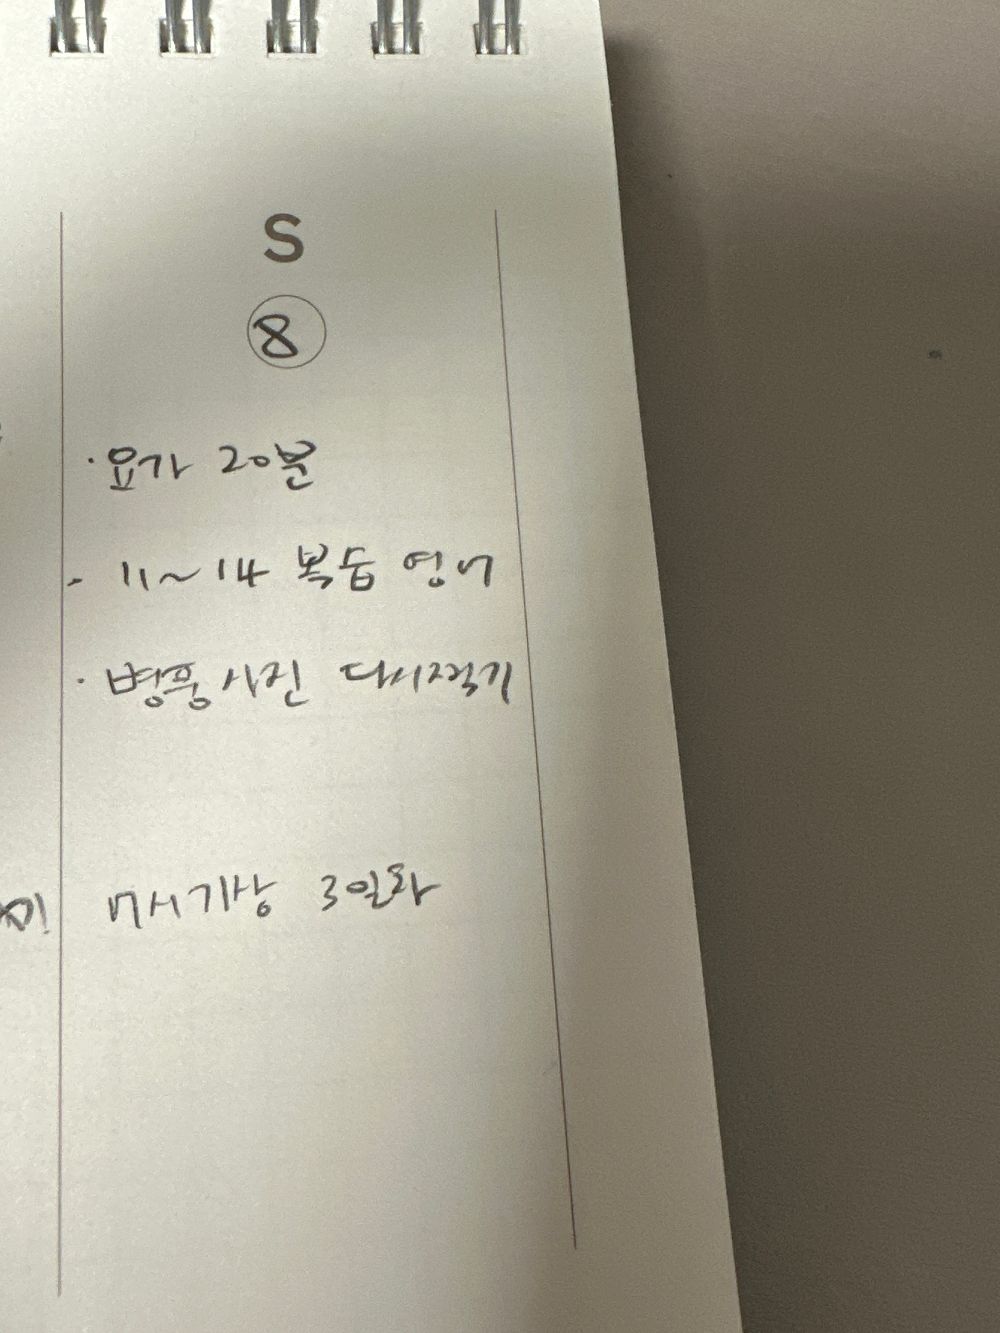 S
8
· 요가 20분
- 11~14 복습 영어
· 병풍사진 다시찍기
7시기상 3일차